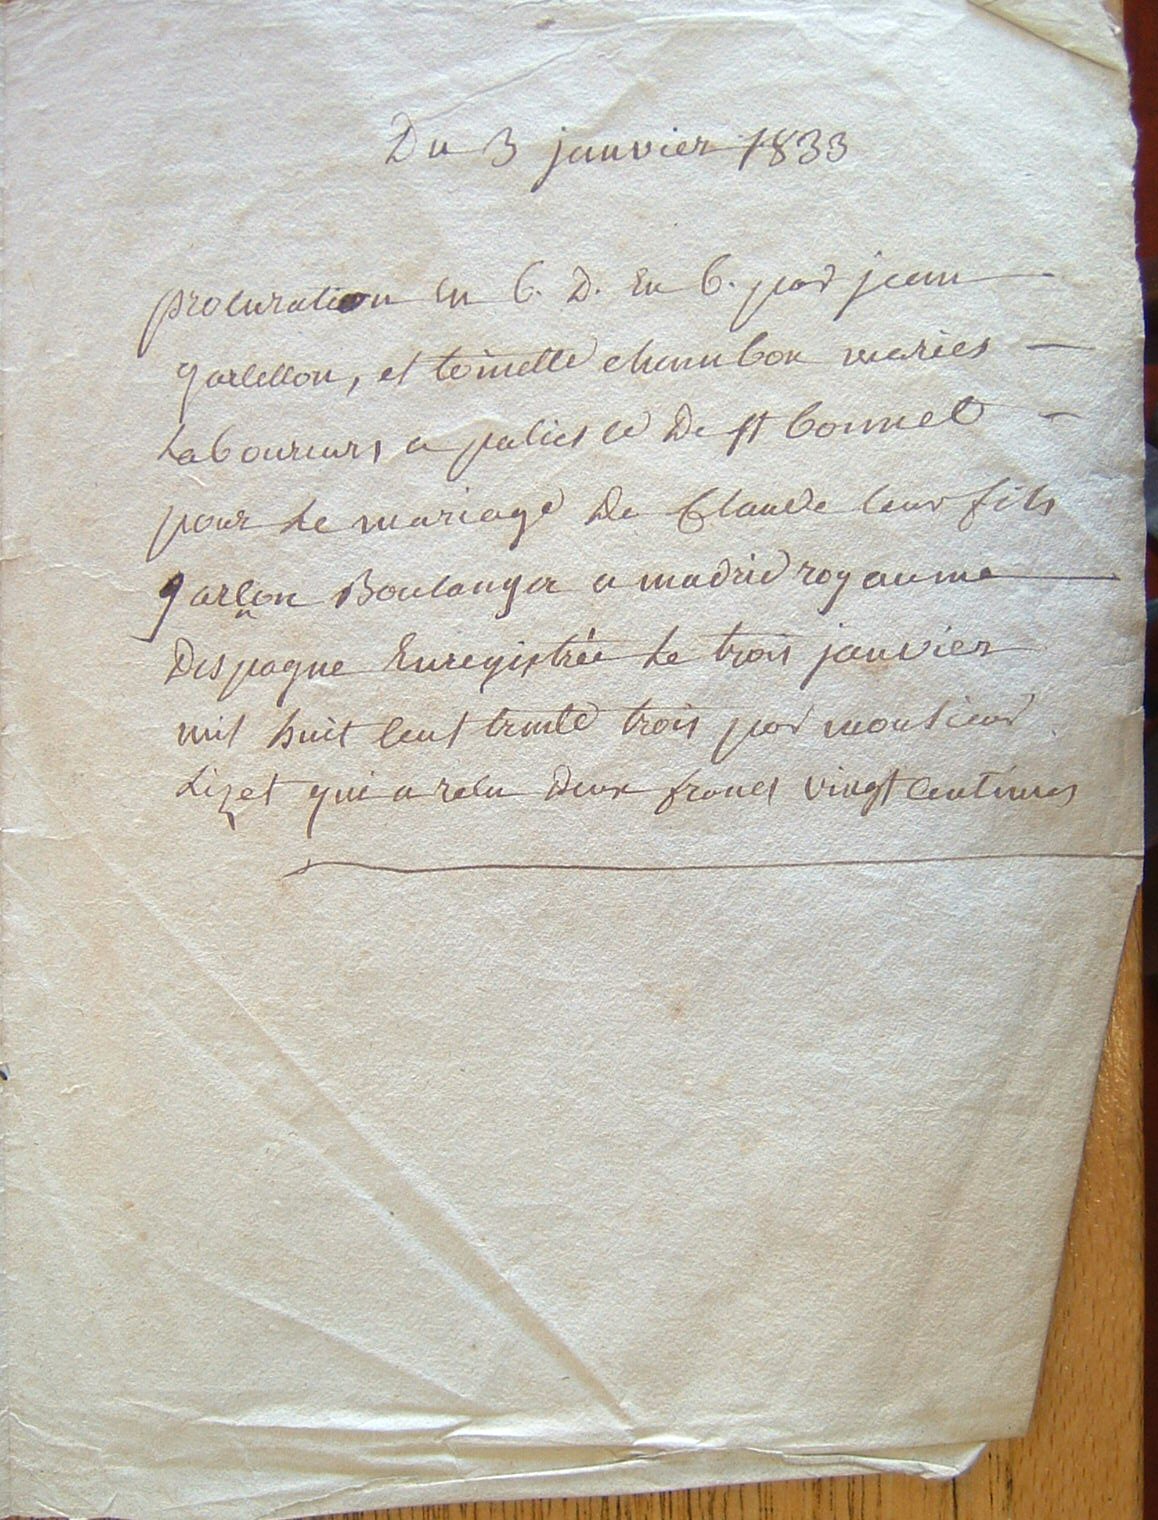 Du 3 janvier 1833
procuration en b. D. en b. par jean
et toinette chambon mariés
Laboureurs a de st bonnet
pour Le mariage De Claude leur fils
garcon Boulanger a madrid royaume
Despagne Enregistrée Le trois janvier
mil huit cent trente trois par monsieur
Lizet qui a recu deux francs vingt centimes